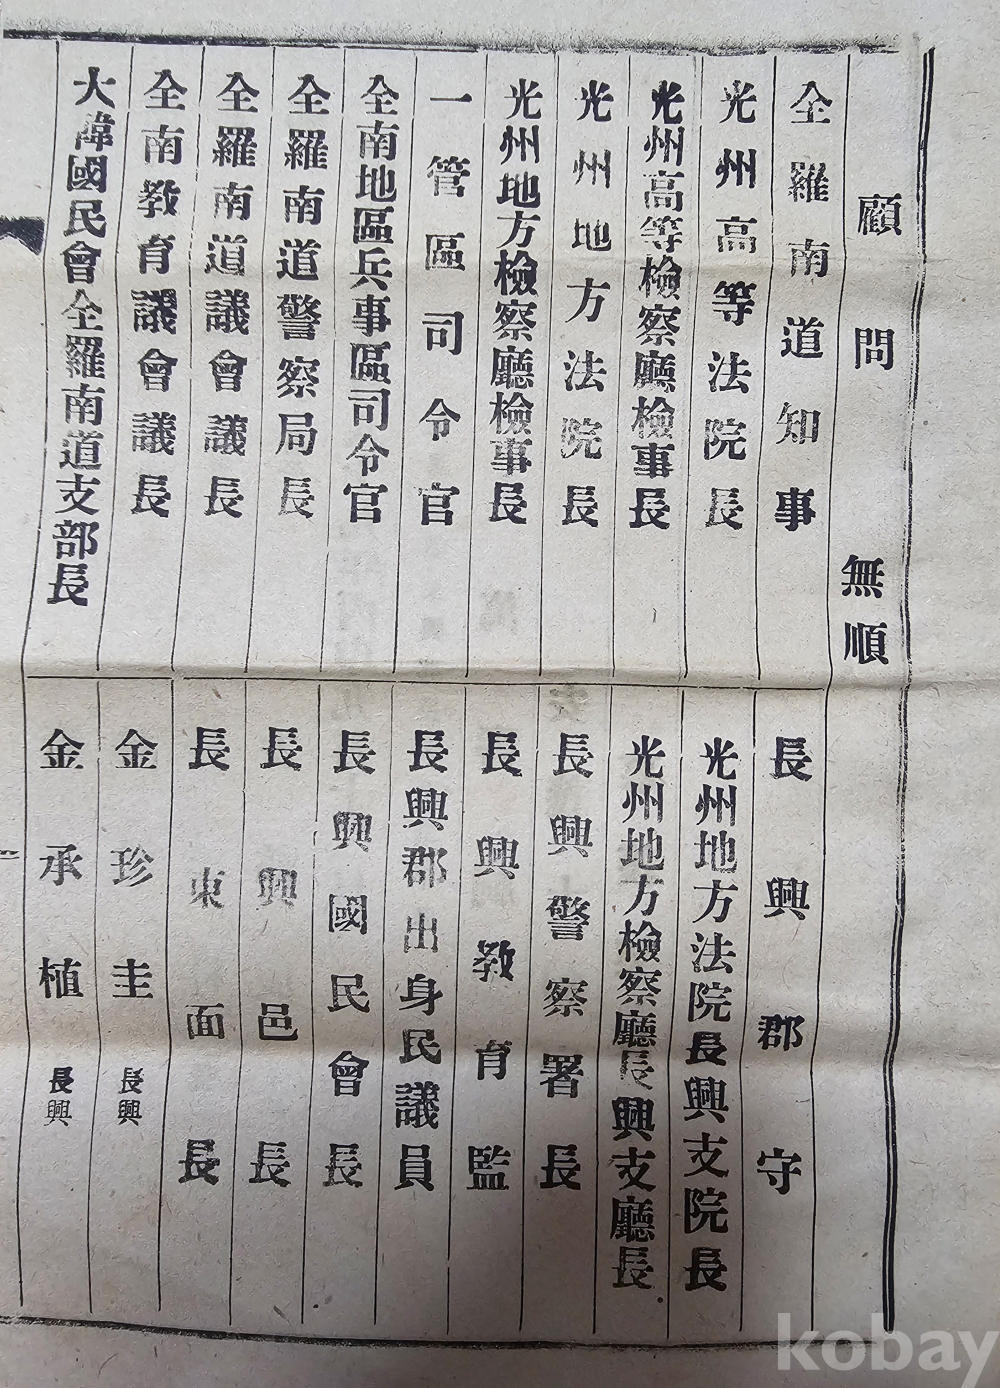 顧問 無順
全羅南道知事
光州高等法院長
光州高等檢察廳檢事長
光州地方法院長
光州地方檢察廳檢事長
一管區司令官
全南地區兵事區司令官
全羅南道警察局長
全羅南道議會議長
全南敎育議會議長
大韓國民會全羅南道支部長
長興郡守
光州地方法院長興支院長
光州地方檢察廳長興支廳長
長興警察署長
長興敎育監
長興郡出身民議員
長興國民會長
長興邑長
長東面長
金珍圭 長興
金承植 長興
kobay